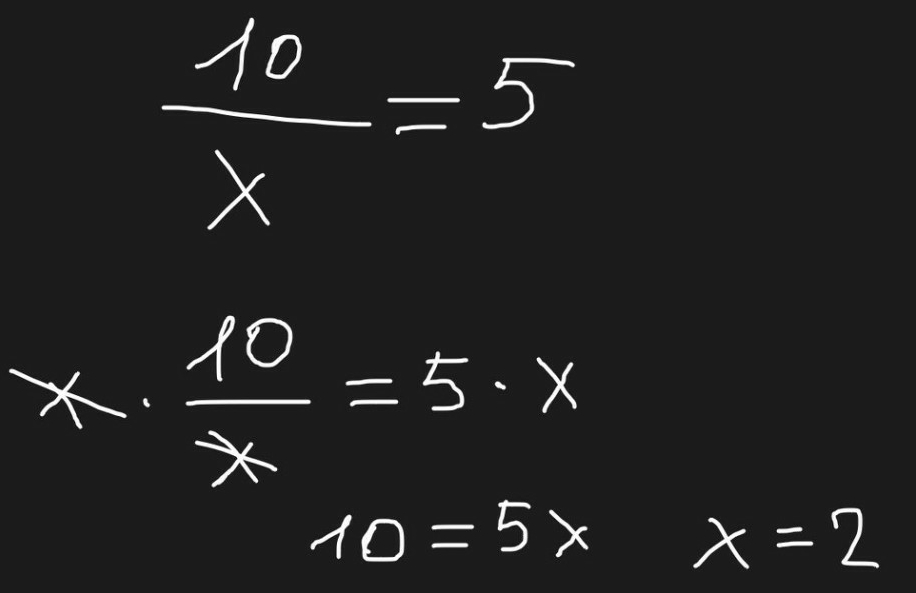 10/x = 5
x · 10/x = 5 · x
10 = 5x x = 2